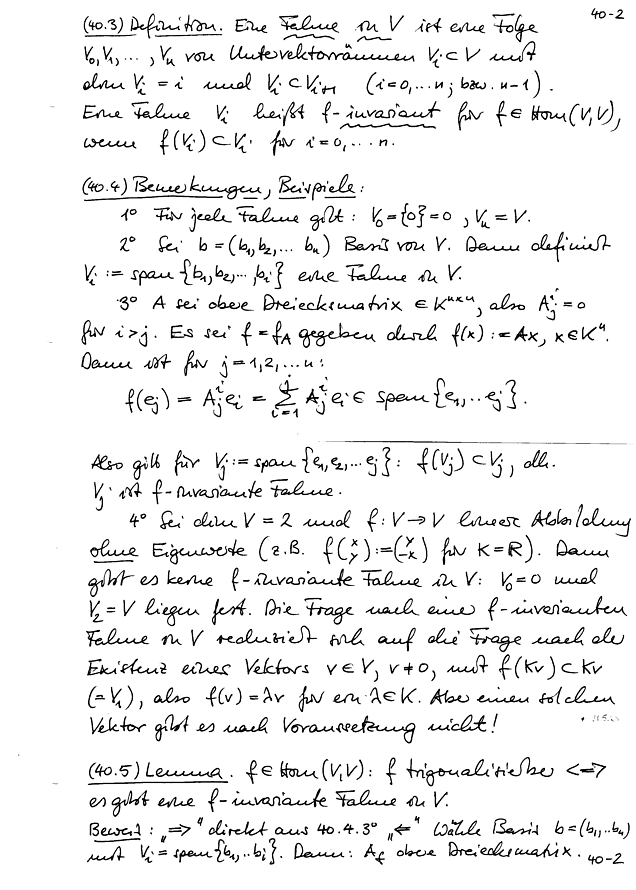 40-2
(40.3) Definition. Eine Fahne in V ist eine Folge
V₀,V₁,..., Vₙ von Untervektorräumen Vᵢ⊂V mit
dim Vᵢ = i und Vᵢ ⊂ Vᵢ₊₁ (i=0,...n; bzw. n-1).
Eine Fahne Vᵢ heißt f-invariant für f ∈ Hom(V,V),
wenn f(Vᵢ) ⊂ Vᵢ für i=0,...n.
(40.4) Bemerkungen, Beispiele:
1° Für jede Fahne gilt: V₀={0}=0, Vₙ=V.
2° Sei b=(b₁,b₂,...bₙ) Basis von V. Dann definiert
Vᵢ := span{b₁,b₂...,bᵢ} eine Fahne in V.
3° A sei obere Dreiecksmatrix ∈ Kⁿˣⁿ, also Aⱼⁱ=0
für i>j. Es sei f=f_A gegeben durch f(x):=Ax, x∈Kⁿ.
Dann ist für j=1,2,...n:
f(eⱼ) = Aⱼⁱeᵢ = ∑ᵢ₌₁ʲ Aⱼⁱeᵢ ∈ span{e₁,..eⱼ}.
Also gilt für Vⱼ:=span{e₁,e₂,...eⱼ}: f(Vⱼ)⊂Vⱼ, d.h.
Vⱼ ist f-invariante Fahne.
4° Sei dim V=2 und f:V→V lineare Abbildung
ohne Eigenwerte (z.B. f(x y):=(y -x) für K=ℝ). Dann
gibt es keine f-invariante Fahne in V: V₀=0 und
V₂=V liegen fest. Die Frage nach einer f-invarianten
Fahne in V reduziert sich auf die Frage nach der
Existenz eines Vektors v∈V, v≠0, mit f(Kv)⊂Kv
(=V₁), also f(v)=λv für ein λ∈K. Aber einen solchen
Vektor gibt es nach Voraussetzung nicht!
(40.5) Lemma. f∈Hom(V,V): f trigonalisierbar <=>
es gibt eine f-invariante Fahne in V.
Beweis: „=>" direkt aus 40.4.3° „<=" Wähle Basis b=(b₁,..bₙ)
mit Vᵢ=span{b₁,..bᵢ}. Dann: A_f obere Dreiecksmatrix. 40-2